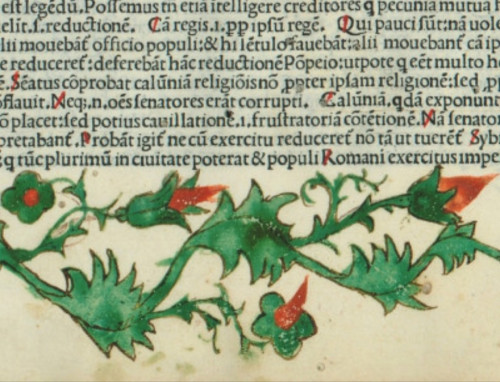 est legēdū. Possemus tñ etiā itelligere creditores q pecunia mutua
elit. s. reductionē. Cā regis. i. pp ipsū regē. Qui pauci sūt: nā uol
lii mouebāt officio populi: & hi létulo fauebāt: alii mouebant cā ip
e reduceret: deferebāt hāc reductionē Pōpeio: utpote q eēt multo he
Senatus cōprobat calūniā religiōis nō ppter ipsam religionē: sed p
ōflauit. Neq; .n. oēs senatores erāt corrupti. Calūniā. qdā exponunt
ō placet: sed potius cauillationē. i. frustratoriā cōtētionē. Nā senator
pretabant. Probāt igit ne cū exercitu reduceret nō tā ut tueret Syb
q tūc plurimū in ciuitate poterat & populi Romani exercitus impe